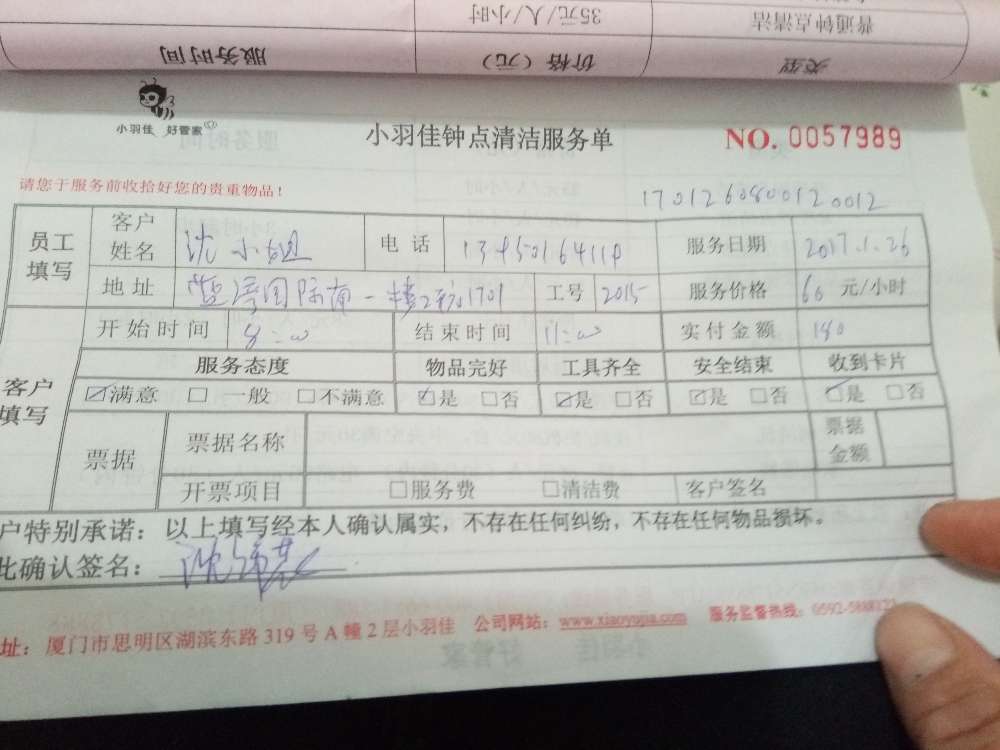 普通钟点清洁 35元/人/小时
类型 价格（元） 服务时间
小羽佳 好管家
小羽佳钟点清洁服务单
NO. 0057989
请您于服务前收拾好您的贵重物品！
1701260800120012
员工填写 客户姓名 沈小姐 电话 服务日期 2017.1.26
地址 工号 2015 服务价格 60 元/小时
客户填写 开始时间 8:00 结束时间 11:00 实付金额 180
服务态度 物品完好 工具齐全 安全结束 收到卡片
☑满意 □一般 □不满意 ☑是 □否 ☑是 □否 ☑是 □否 ☑是 □否
票据 票据名称 票据金额
开票项目 □服务费 □清洁费 客户签名
户特别承诺：以上填写经本人确认属实，不存在任何纠纷，不存在任何物品损坏。
此确认签名：
址：厦门市思明区湖滨东路319号A幢2层小羽佳 公司网站：www.xiaoyujia.com 服务监督热线：